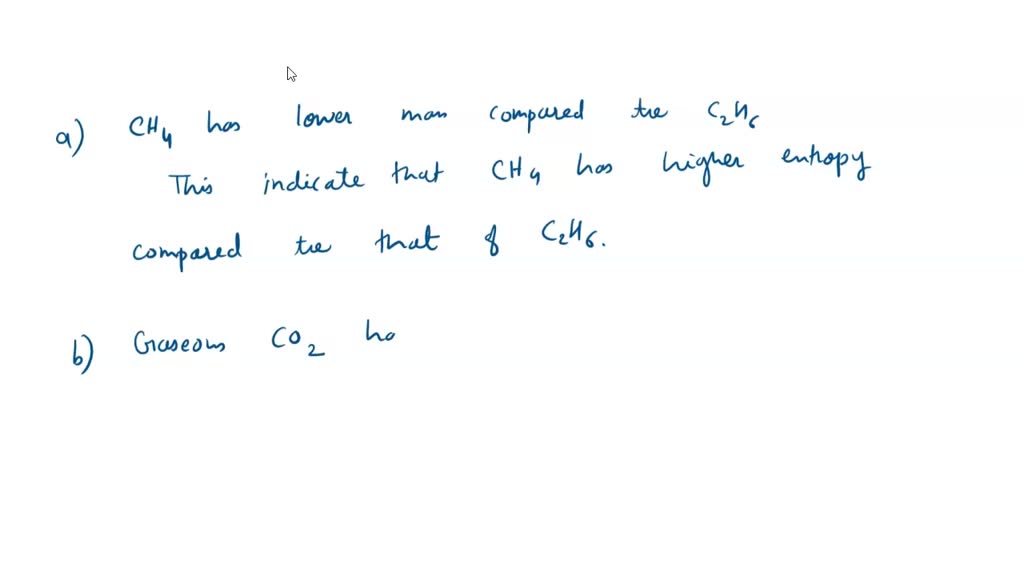 a) CH4 has lower mass compared the C2H6
This indicate that CH4 has higher entropy
compared the that of C2H6.
b) Gaseous CO2 ha